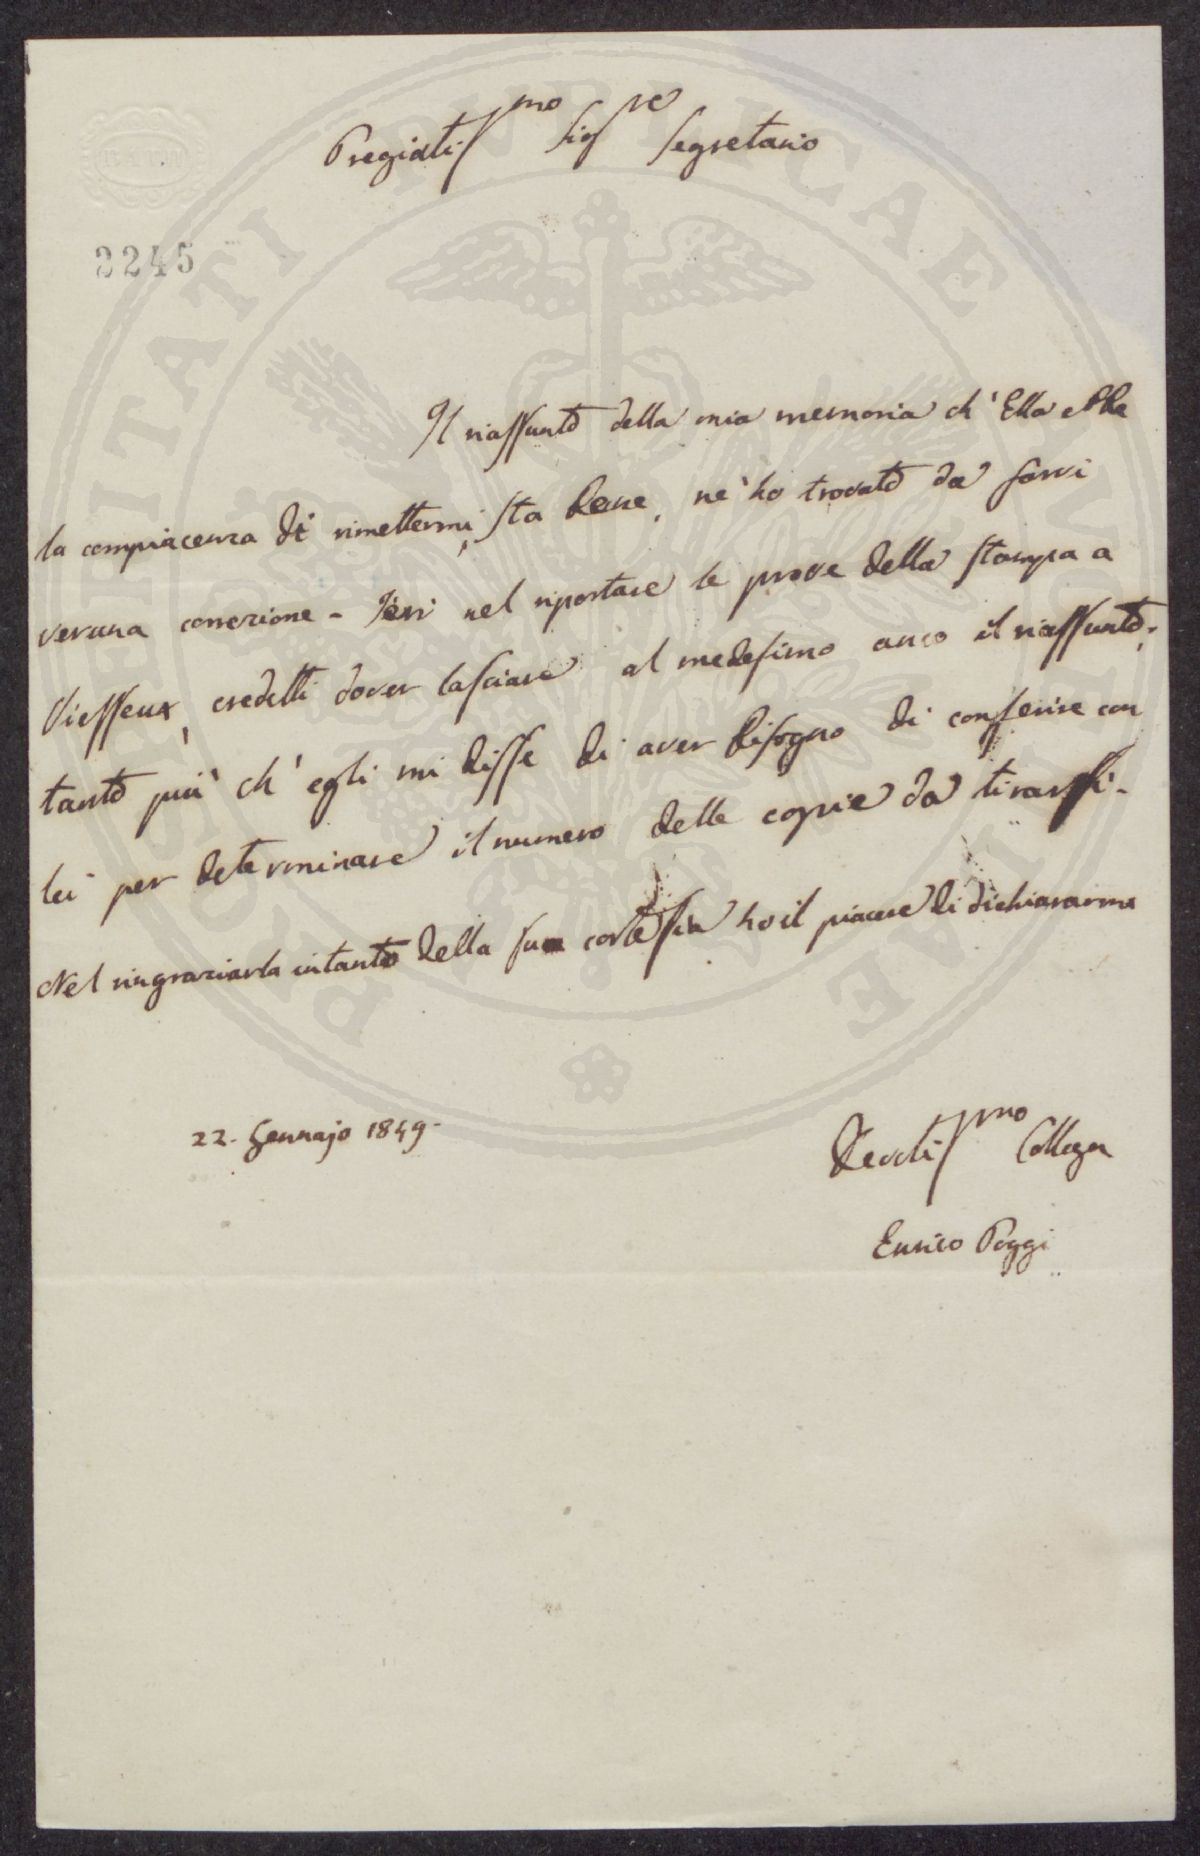 Pregiatissmo Sigre Segretario
2245
Il riassunto della mia memoria ch'Ella ebbe
la compiacenza di rimettermi, sta bene, nè ho trovato da farvi
veruna correzione - Ieri nel riportare le prove della stampa a
Viesseux, credetti dover lasciare al medesimo anco il riassunto,
tanto più ch'egli mi disse di aver bisogno di conferire con
lei per determinare il numero delle copie da tirarsi -
Nel ringraziarla intanto della sua cortesia ho il piacere di dichiararmi
22. Gennajo 1849-
Devotissmo Collega
Enrico Poggi
PUBLICAE